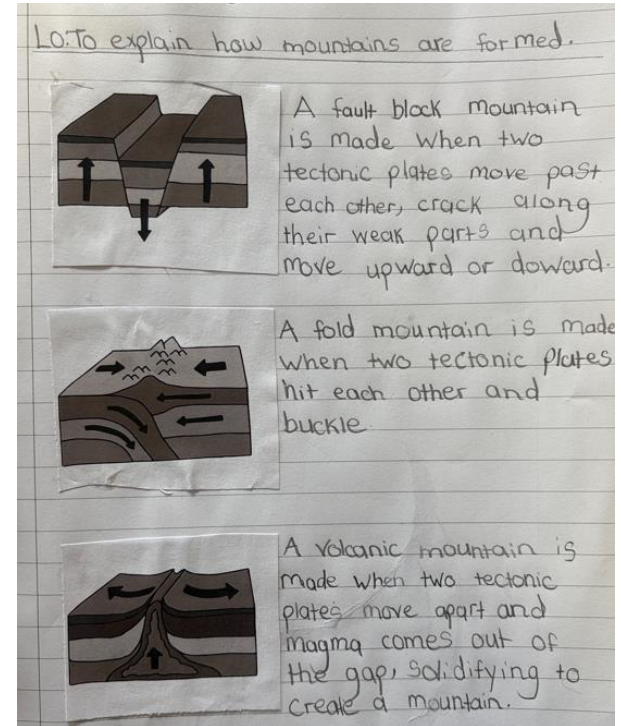 LO: To explain how mountains are formed.
A fault block mountain
is made when two
tectonic plates move past
each other, crack along
their weak parts and
move upward or doward.
A fold mountain is made
when two tectonic plates
hit each other and
buckle
A volcanic mountain is
made when two tectonic
plates move apart and
magma comes out of
the gap, solidifying to
create a mountain.